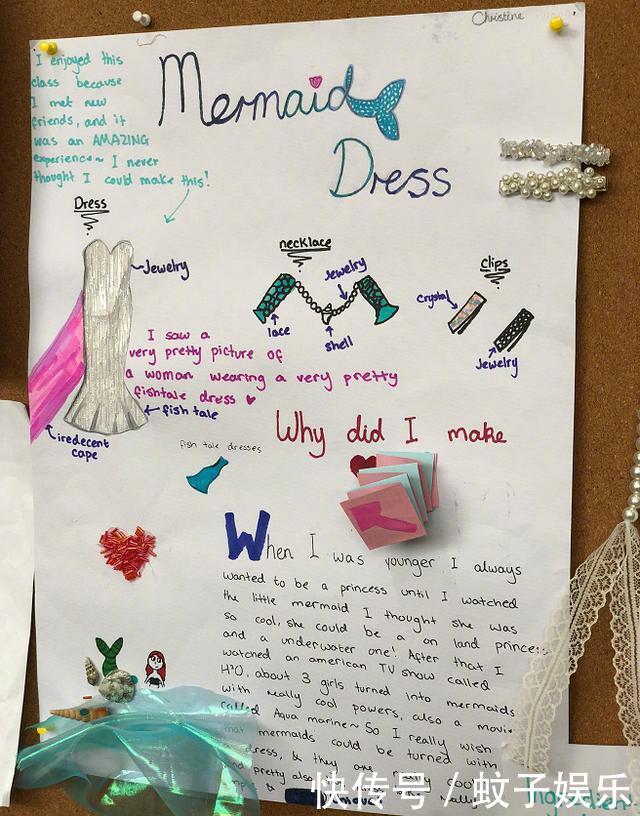 Christine
I enjoyed this
class because
I met new
friends, and it
was an AMAZING
experience~ I never
thought I could make this!
Mermaid
Dress
Dress
Jewelry
fish tale
iredecent
cape
necklace
Jewelry
lace
shell
clips
crystal
Jewelry
I saw a
very pretty picture of
a woman wearing a very pretty
fishtale dress
fish tale dresses
Why did I make
When I was younger I always
wanted to be a princess until I watched
the little mermaid I thought she was
so cool, she could be a on land princess
and a underwater one! After that I
watched an american TV show called
H2O, about 3 girls turned into mermaids
with really cool powers, also a movie
called Aqua marine~ So I really wish
that mermaids could be turned with
a dress, & they are really cool
and pretty also
快传号/蚊子娱乐